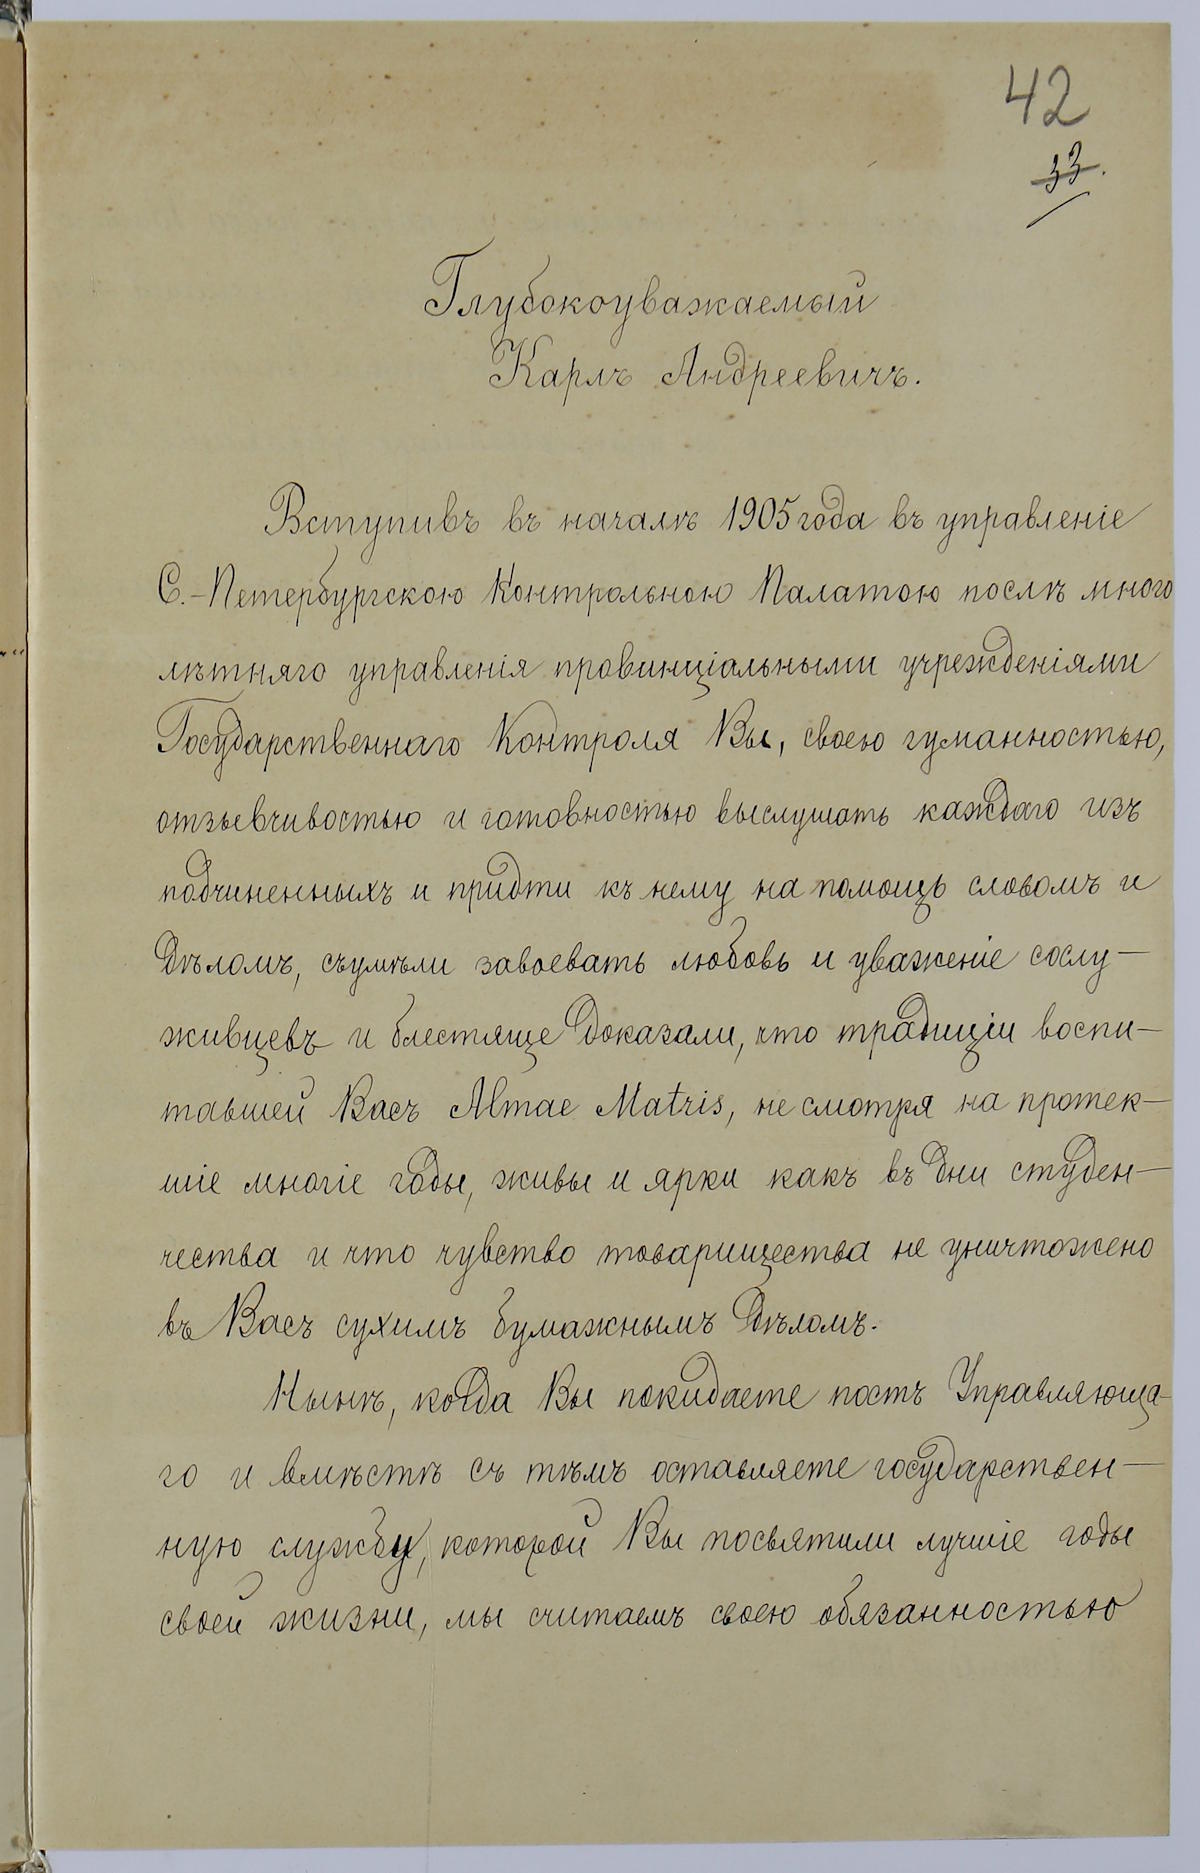 42
33.
Глубокоуважаемый
Карлъ Андреевичъ.
Вступивъ въ началѣ 1905 года въ управленіе
С.-Петербургскою Контрольною Палатою послѣ много
лѣтняго управленія провинціальными учрежденіями
Государственнаго Контроля Вы, своею гуманностью,
отзывчивостью и готовностью выслушать каждаго изъ
подчиненныхъ и придти къ нему на помощь словомъ и
дѣломъ, съумѣли завоевать любовь и уваженіе сослу-
живцевъ и блестяще доказали, что традиціи воспи-
тавшей Васъ Almae Matris, не смотря на протек-
шіе многіе годы, живы и ярки какъ въ дни студен-
чества и что чувство товарищества не уничтожено
въ Васъ сухимъ бумажнымъ дѣломъ.
Нынѣ, когда Вы покидаете постъ Управляюща-
го и вмѣстѣ съ тѣмъ оставляете государствен-
ную службу, которой Вы посвятили лучшіе годы
своей жизни, мы считаемъ своею обязанностью